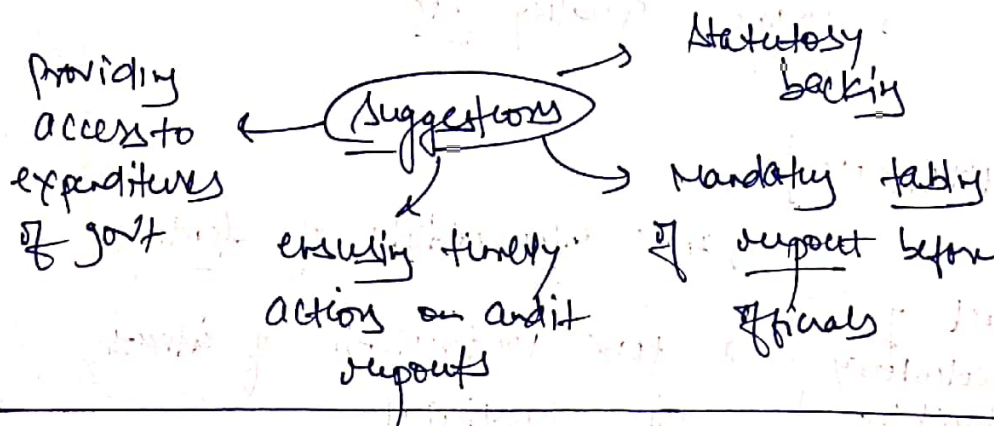 Suggestions
Statutory
backing
Mandatory tabling
of report before
officials
ensuring timely
actions on audit
reports
Providing
access to
expenditures
of govt